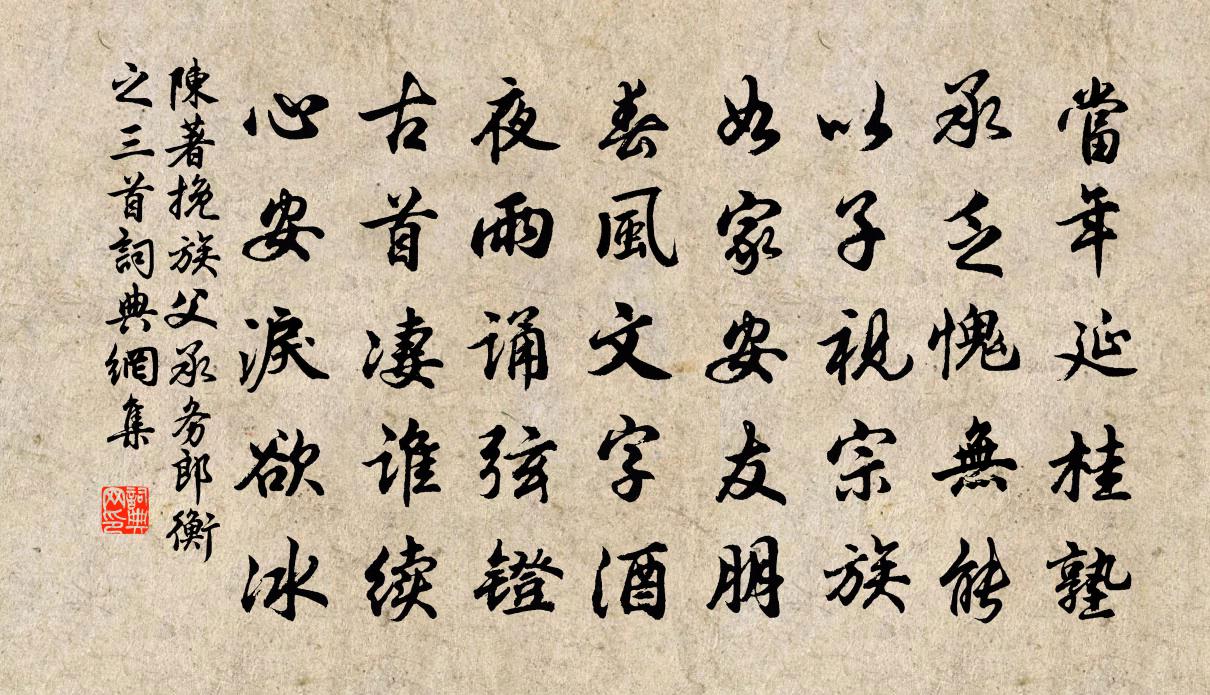 當年延桂塾
承乏愧無能
以子視宗族
如家安友朋
春風文字酒
夜雨诵弦镫
古首凄谁续
心安淚欲冰
陳著挽族父承务郎衡
之三首詞典網集
詞典
网印